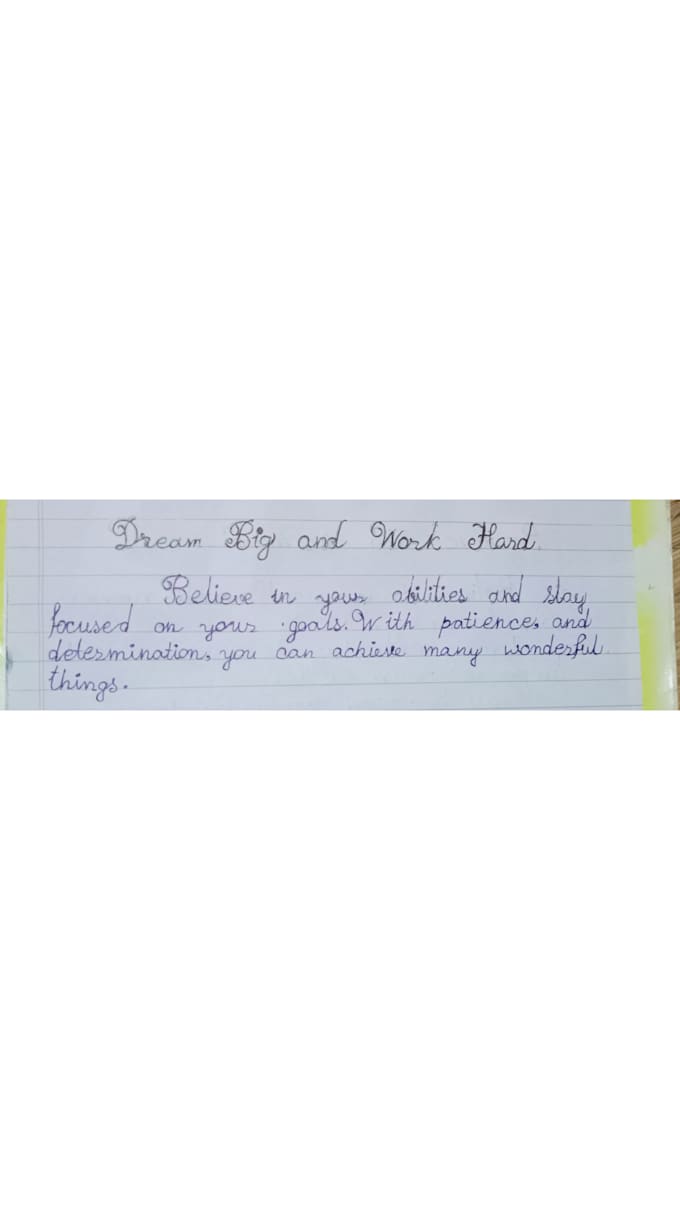 Dream Big and Work Hard.
Believe in your abilities and stay
focused on your goals. With patience, and
determination, you can achieve many wonderful
things.